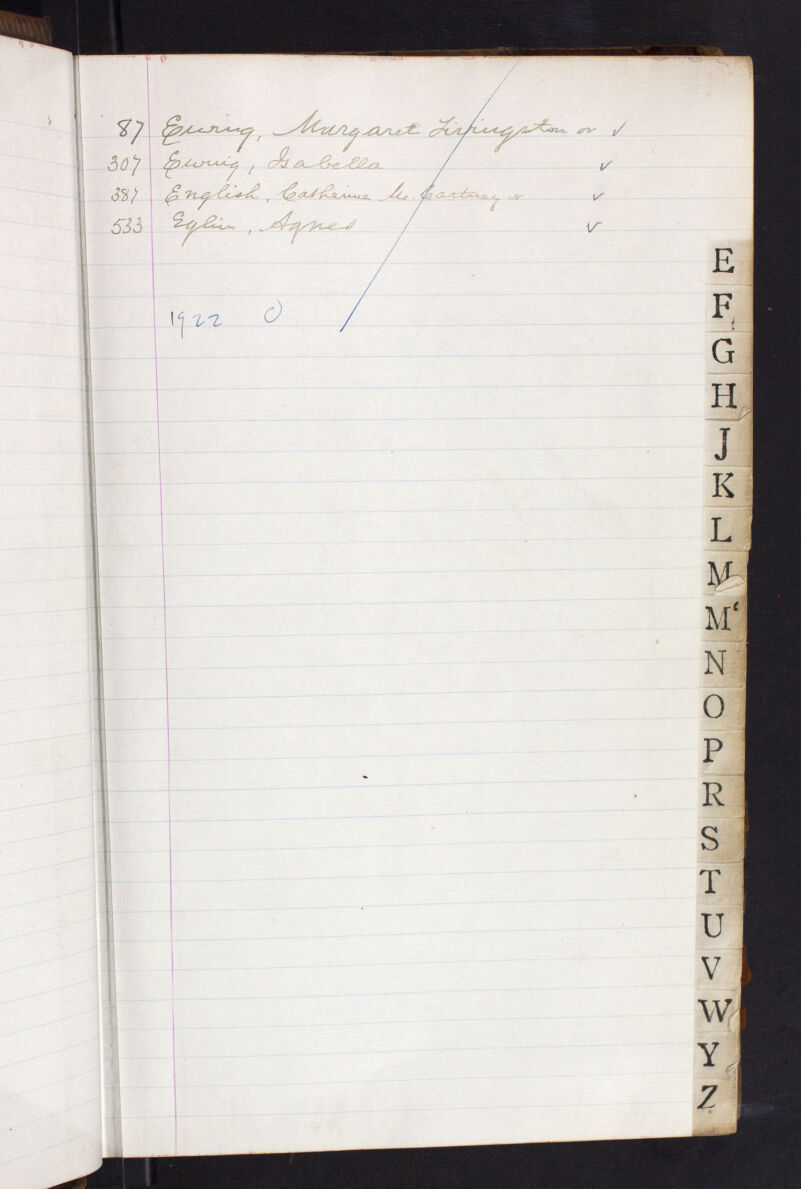 87 Ewing, Margaret Livingston or ✓
307 Ewing, Isabella ✓
387 English, Catherine Mc. Cartney or ✓
533 Eglin, Agnes ✓
1922
E
F
G
H
J
K
L
M
Mʿ
N
O
P
R
S
T
U
V
W
Y
Z